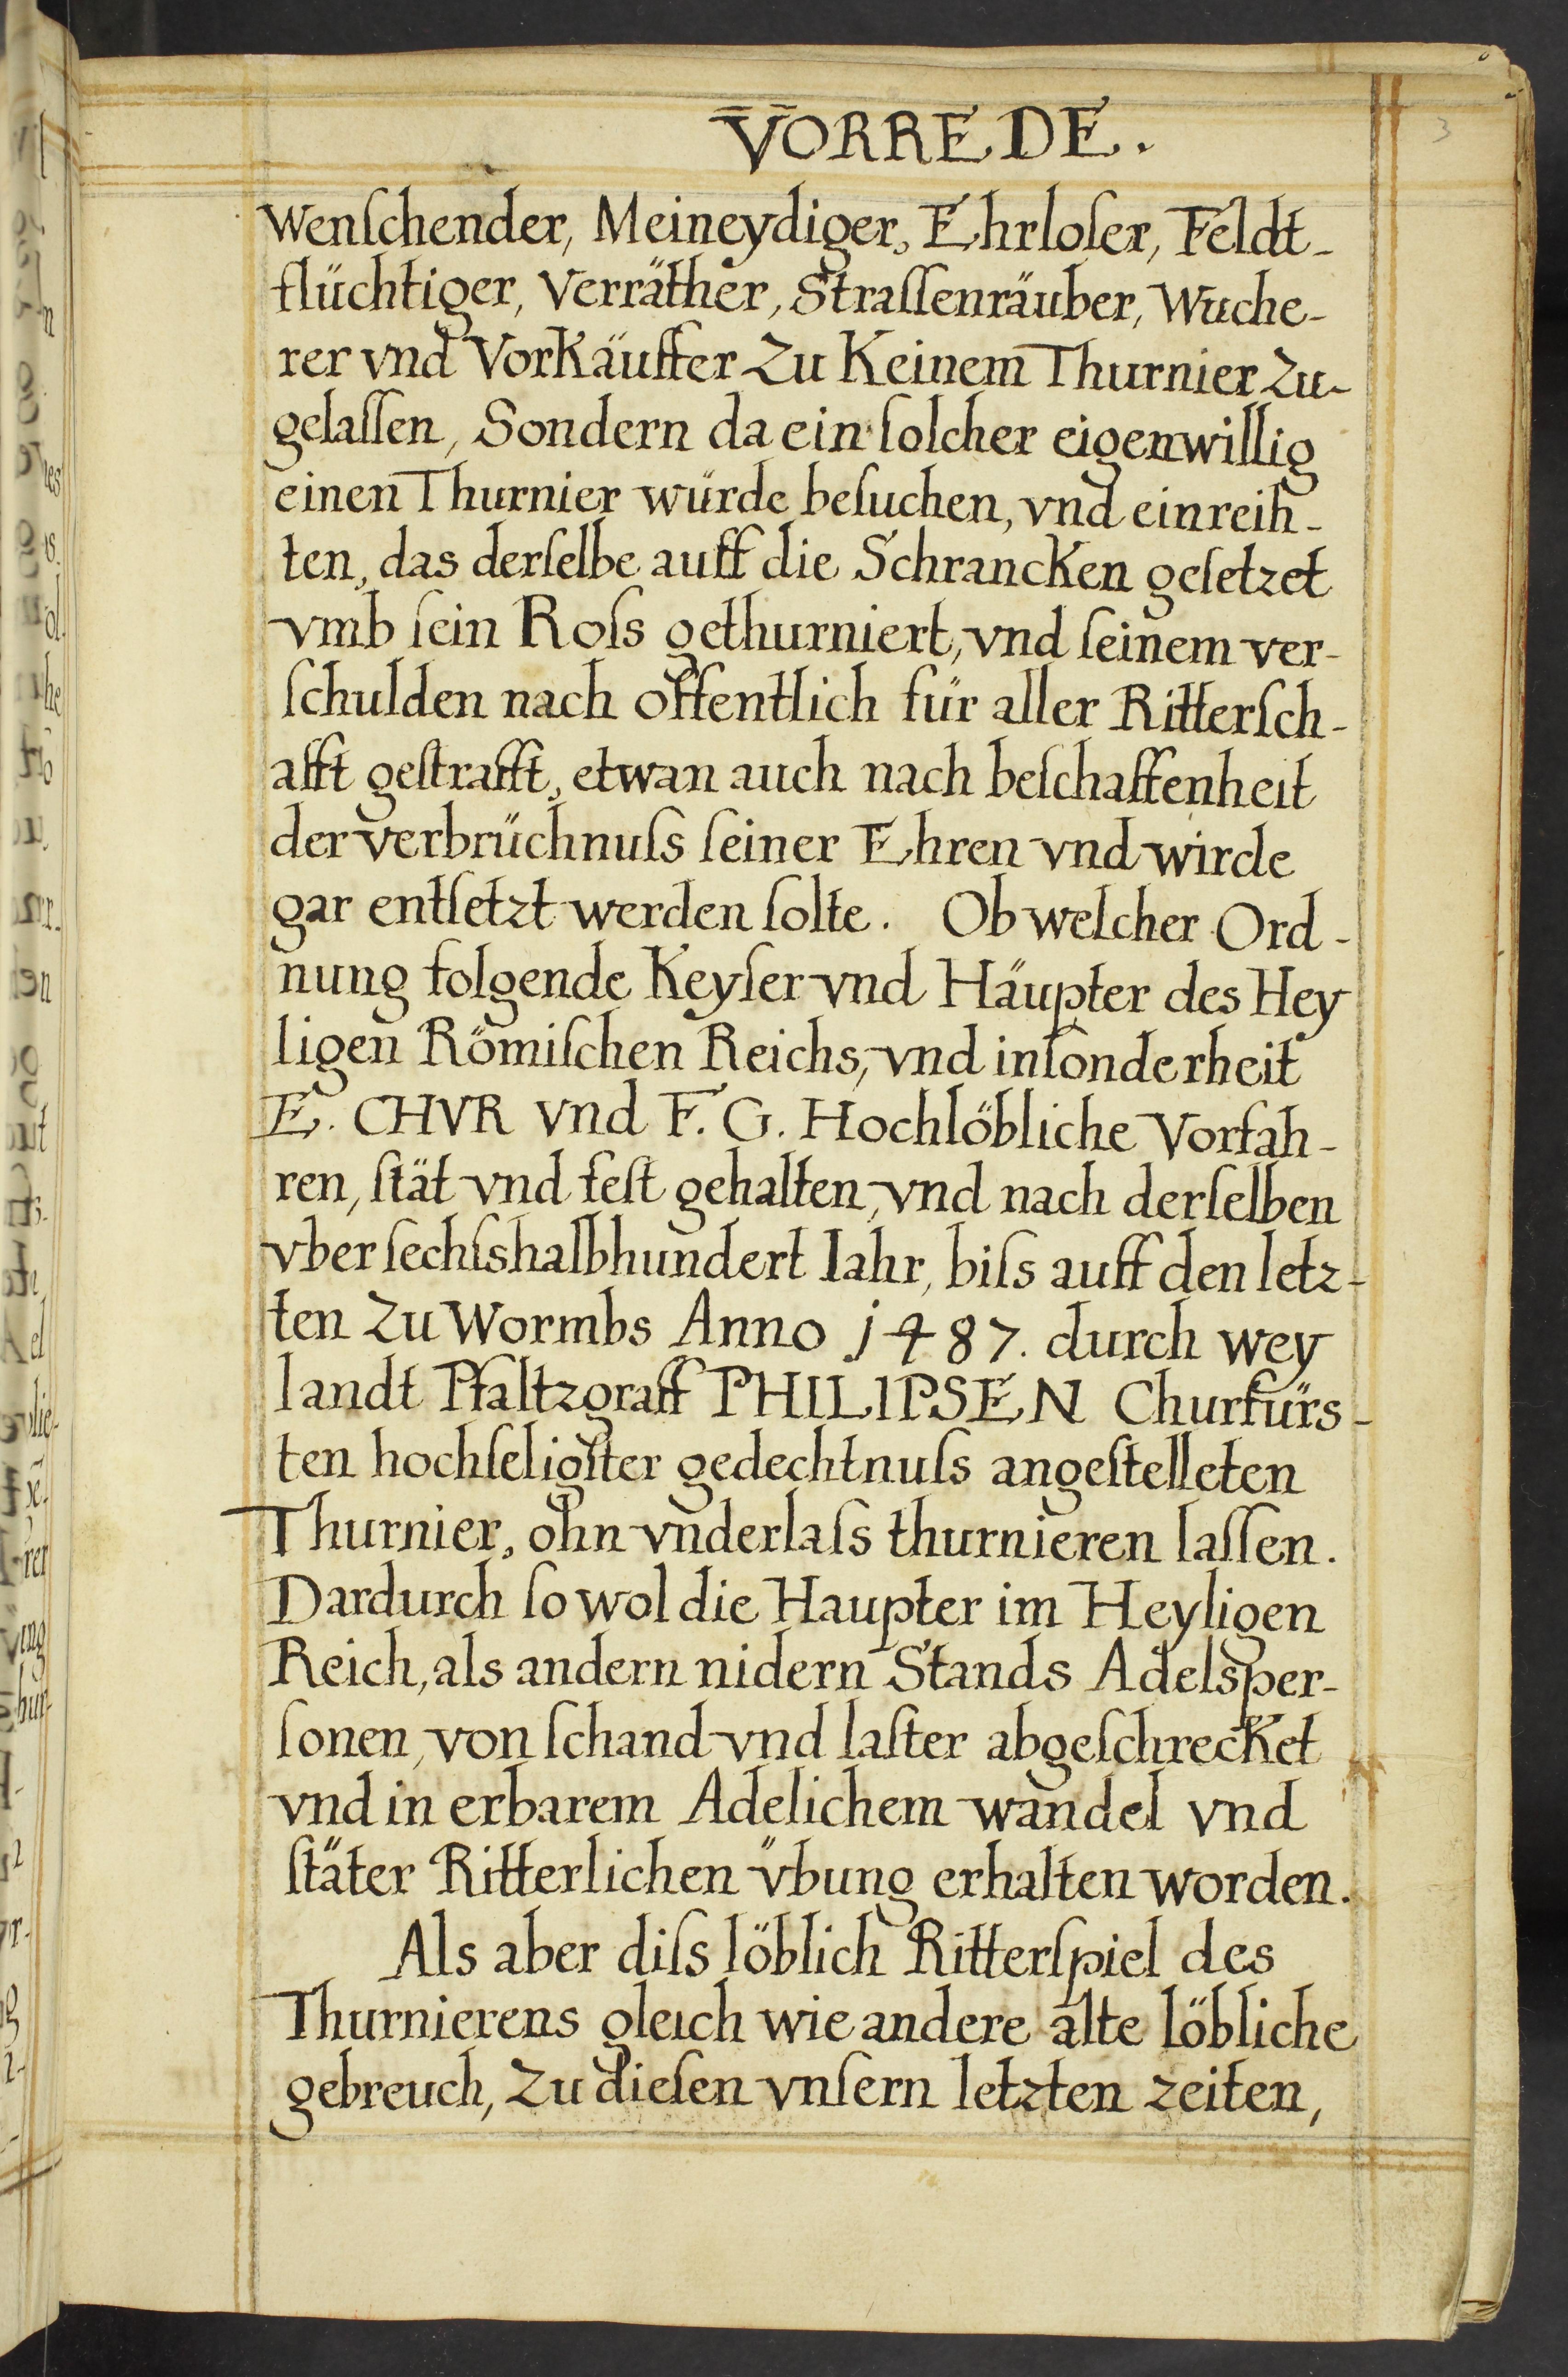 VORREDE.
3
Wenſchender, Meineydiger, Ehrloſer, Feldt-
flüchtiger, Verräther, Straſſenräuber, Wuche-
rer vnd Vorkäuffer Zu Keinem Thurnier Zu-
gelaſſen, Sondern da ein ſolcher eigenwillig
einen Thurnier würde beſuchen, vnd einreih-
ten, das derſelbe auff die Schrancken geſetzet
vmb ſein Roſs gethurniert, vnd ſeinem ver-
ſchulden nach offentlich für aller Ritterſch-
afft geſtrafft, etwan auch nach beſchaffenheit
der verbrüchnuſs ſeiner Ehren vnd wirde
gar entſetzt werden ſolte. Ob welcher Ord-
nung folgende Keyſer vnd Häupter des Hey
ligen Römiſchen Reichs, vnd inſonderheit
E. CHVR vnd F. G. Hochlöbliche Vorfah-
ren, ſtät vnd feſt gehalten, vnd nach derſelben
vber ſechſshalbhundert Iahr, biſs auff den letz-
ten Zu Wormbs Anno 1487. durch wey
landt Pfaltzgraff PHILIPSEN Churfürs-
ten hochſeligſter gedechtnuſs angeſtelleten
Thurnier, ohn vnderlaſs thurnieren laſſen.
Dardurch ſo wol die Haupter im Heyligen
Reich, als andern nidern Stands Adelsper-
ſonen, von ſchand vnd laſter abgeſchrecket
vnd in erbarem Adelichem wandel vnd
ſtäter Ritterlichen v̈bung erhalten worden.
Als aber diſs löblich Ritterſpiel des
Thurnierens gleich wie andere alte löbliche
gebreuch, Zu dieſen vnſern letzten zeiten,